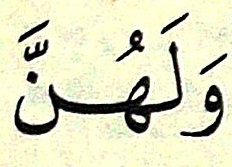 وَلَهُنَّ